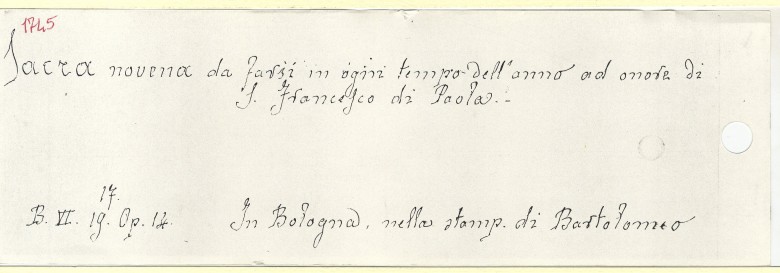 1745
Sacra novena da farsi in ogini tempo dell'anno ad onore di
S. Francesco di Paola.-
17.
B. VI. 19. Op. 14. In Bologna, nella stamp. di Bartolomeo